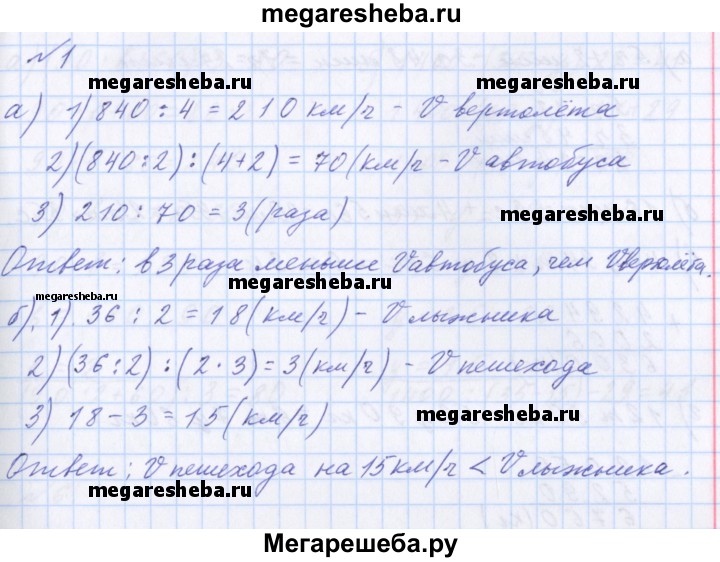 megaresheba.ru
№1
megaresheba.ru
а) 1) 840 : 4 = 210 км/ч - V вертолёта
2) (840:2) : (4+2) = 70 (км/ч - V автобуса
3) 210 : 70 = 3 (раза)
megaresheba.ru
Ответ: в 3 раза меньше Vавтобуса, чем Vвертолёта.
megaresheba.ru
megaresheba.ru
б). 1). 36 : 2 = 18 (км/ч) - V лыжника
2) (36:2) : (2·3) = 3 (км/ч) - V пешехода
3) 18 - 3 = 15 (км/ч)
megaresheba.ru
Ответ: V пешехода на 15 км/ч < V лыжника.
megaresheba.ru
Мегарешеба.ру